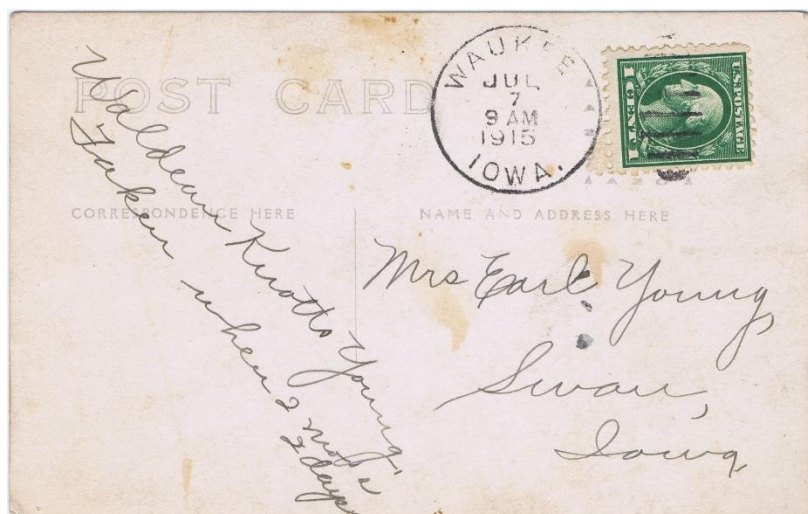 POST CARD
WAUKEE
JUL
7
9 AM
1915
IOWA.
U.S. POSTAGE
1 CENT 1
AZO
CORRESPONDENCE HERE
NAME AND ADDRESS HERE
Waldean Knotts Young,
Taken when 2 mos &
2 days
Mrs Earl Young,
Swan,
Iowa